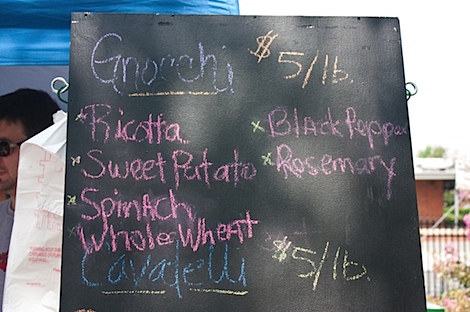 Gnocchi $5/lb.
Ricotta
Sweet Potato
Spinach
Whole Wheat
Black Pepper
Rosemary
Cavatelli $5/lb.